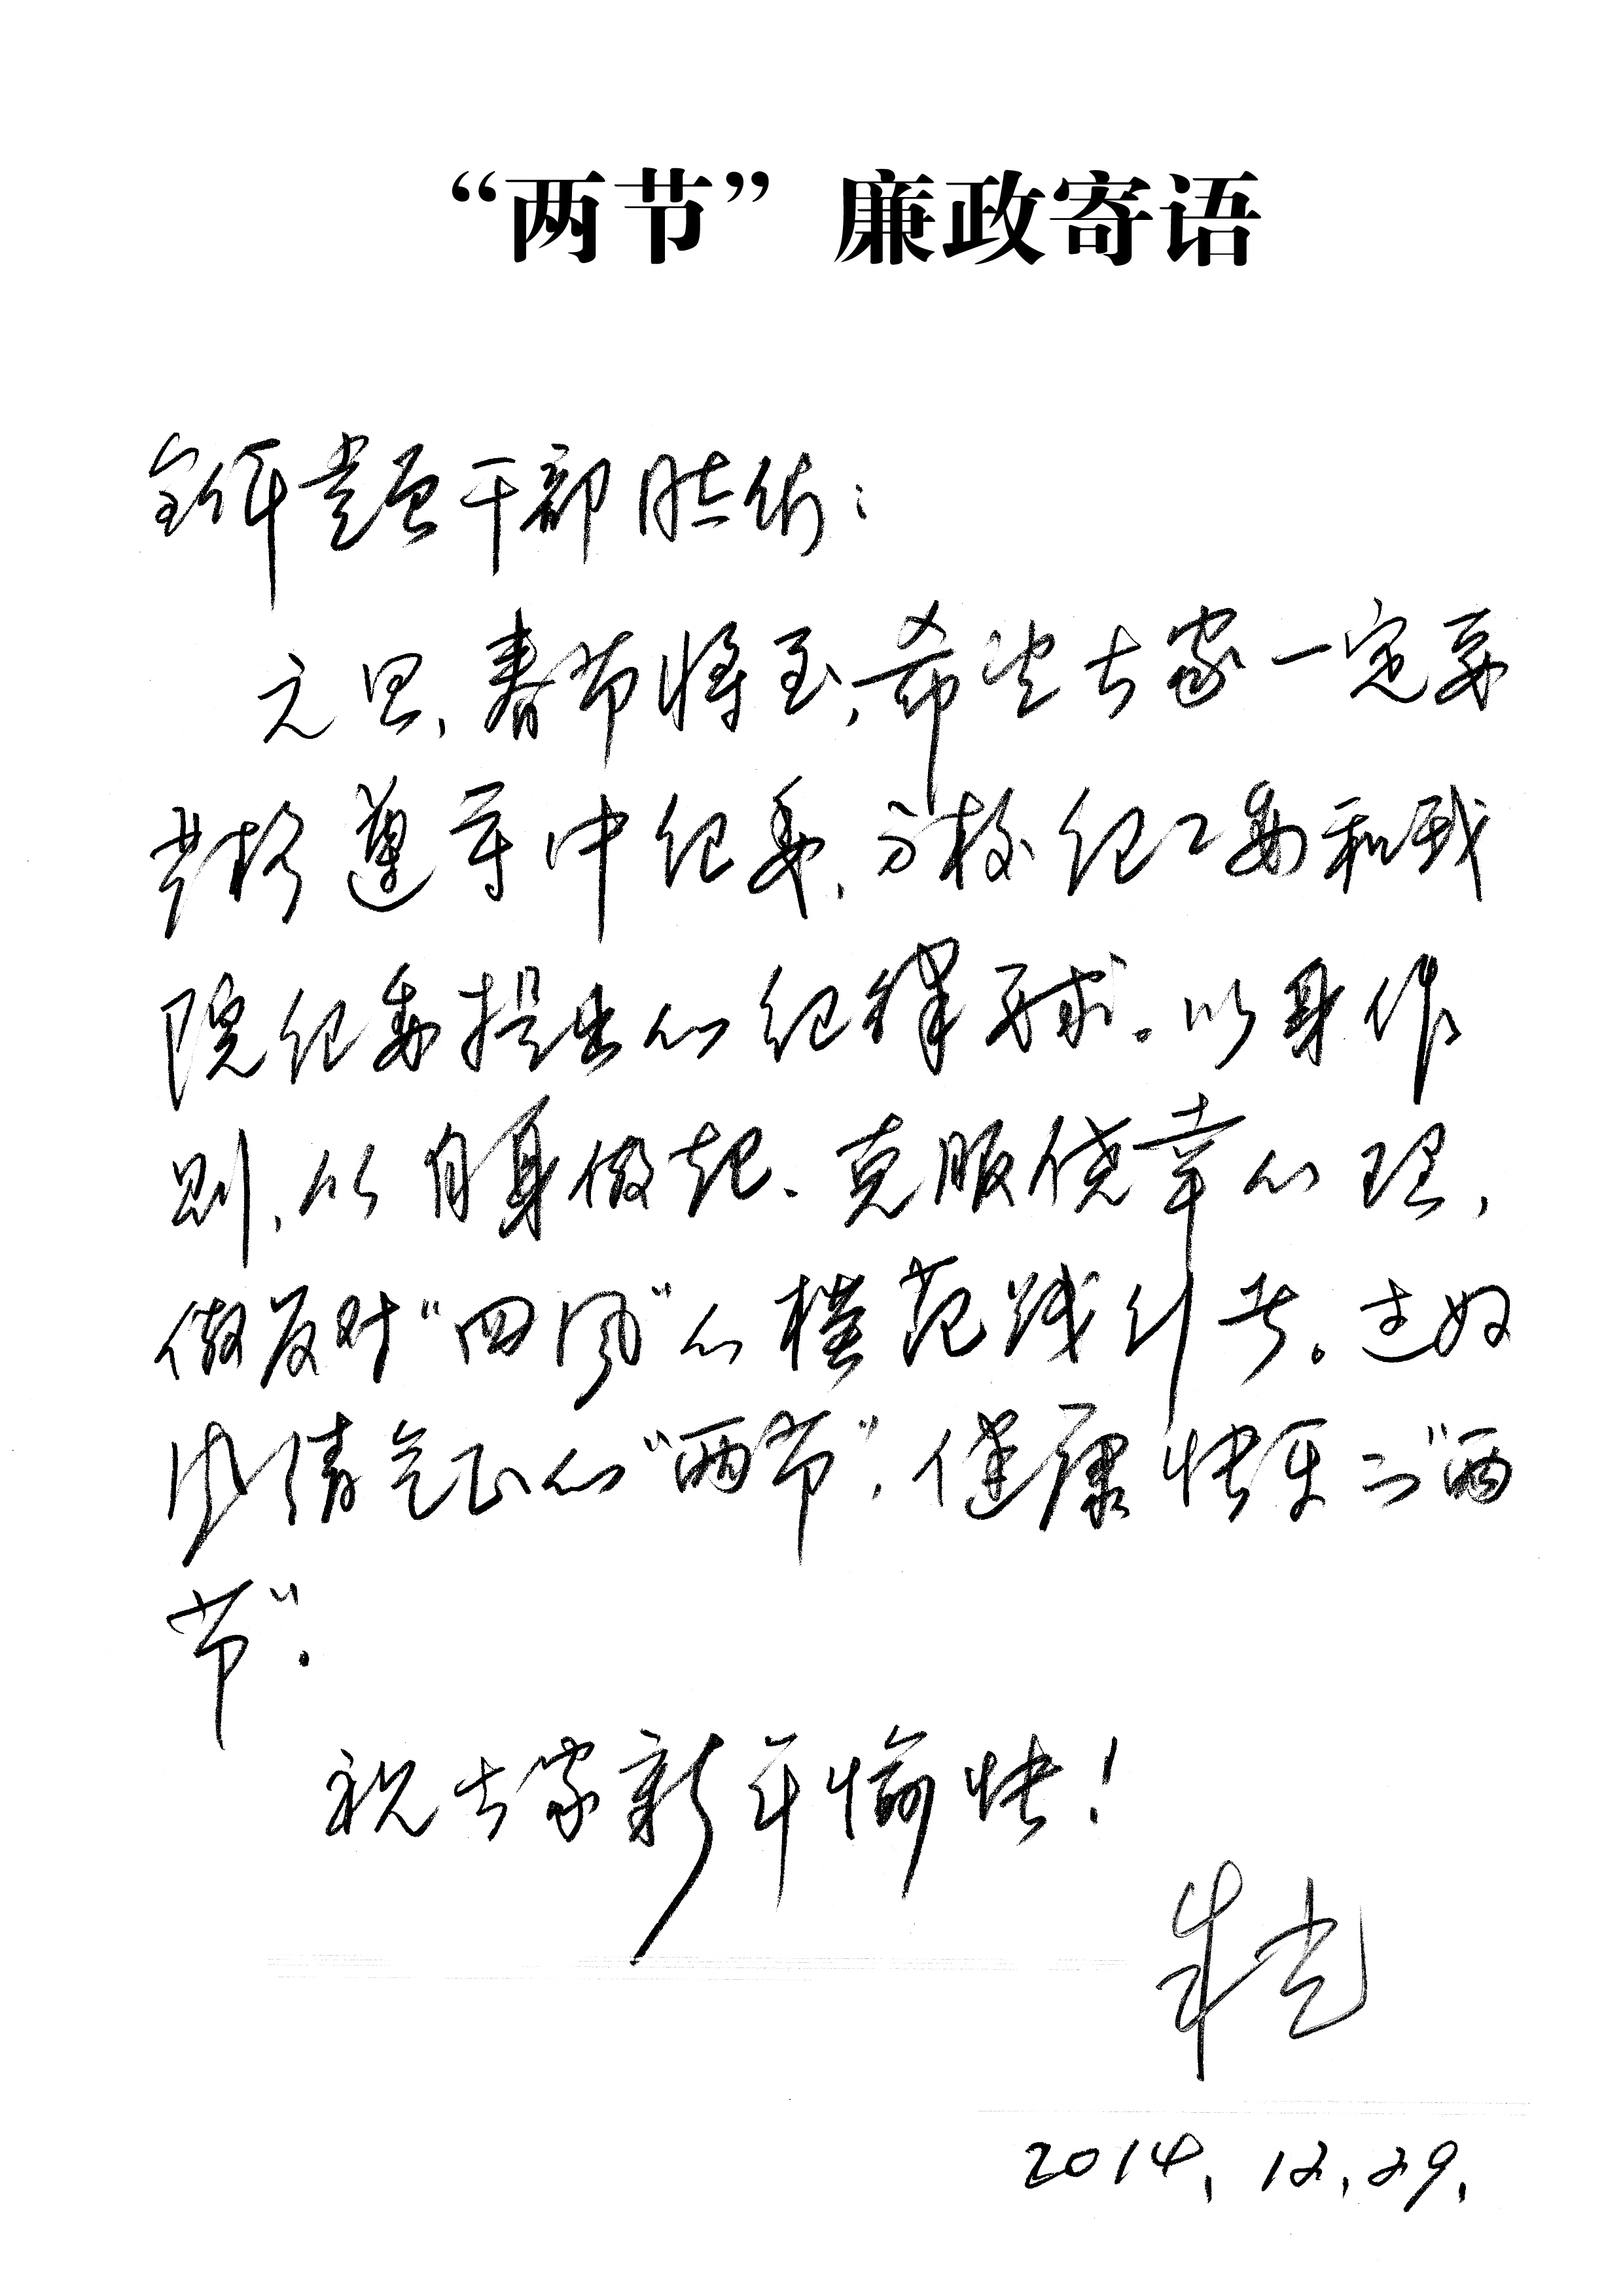 “两节”廉政寄语
全体党员干部同志们：
元旦、春节将至，希望大家一定要
严格遵守中纪委、高校纪工委和我
院纪委提出的纪律要求。以身作
则，从自身做起、克服侥幸心理，
做反对“四风”的模范践行者。过好
风清气正的“两节”，健康快乐的“两
节”.
祝大家新年愉快！
2014.12.29.